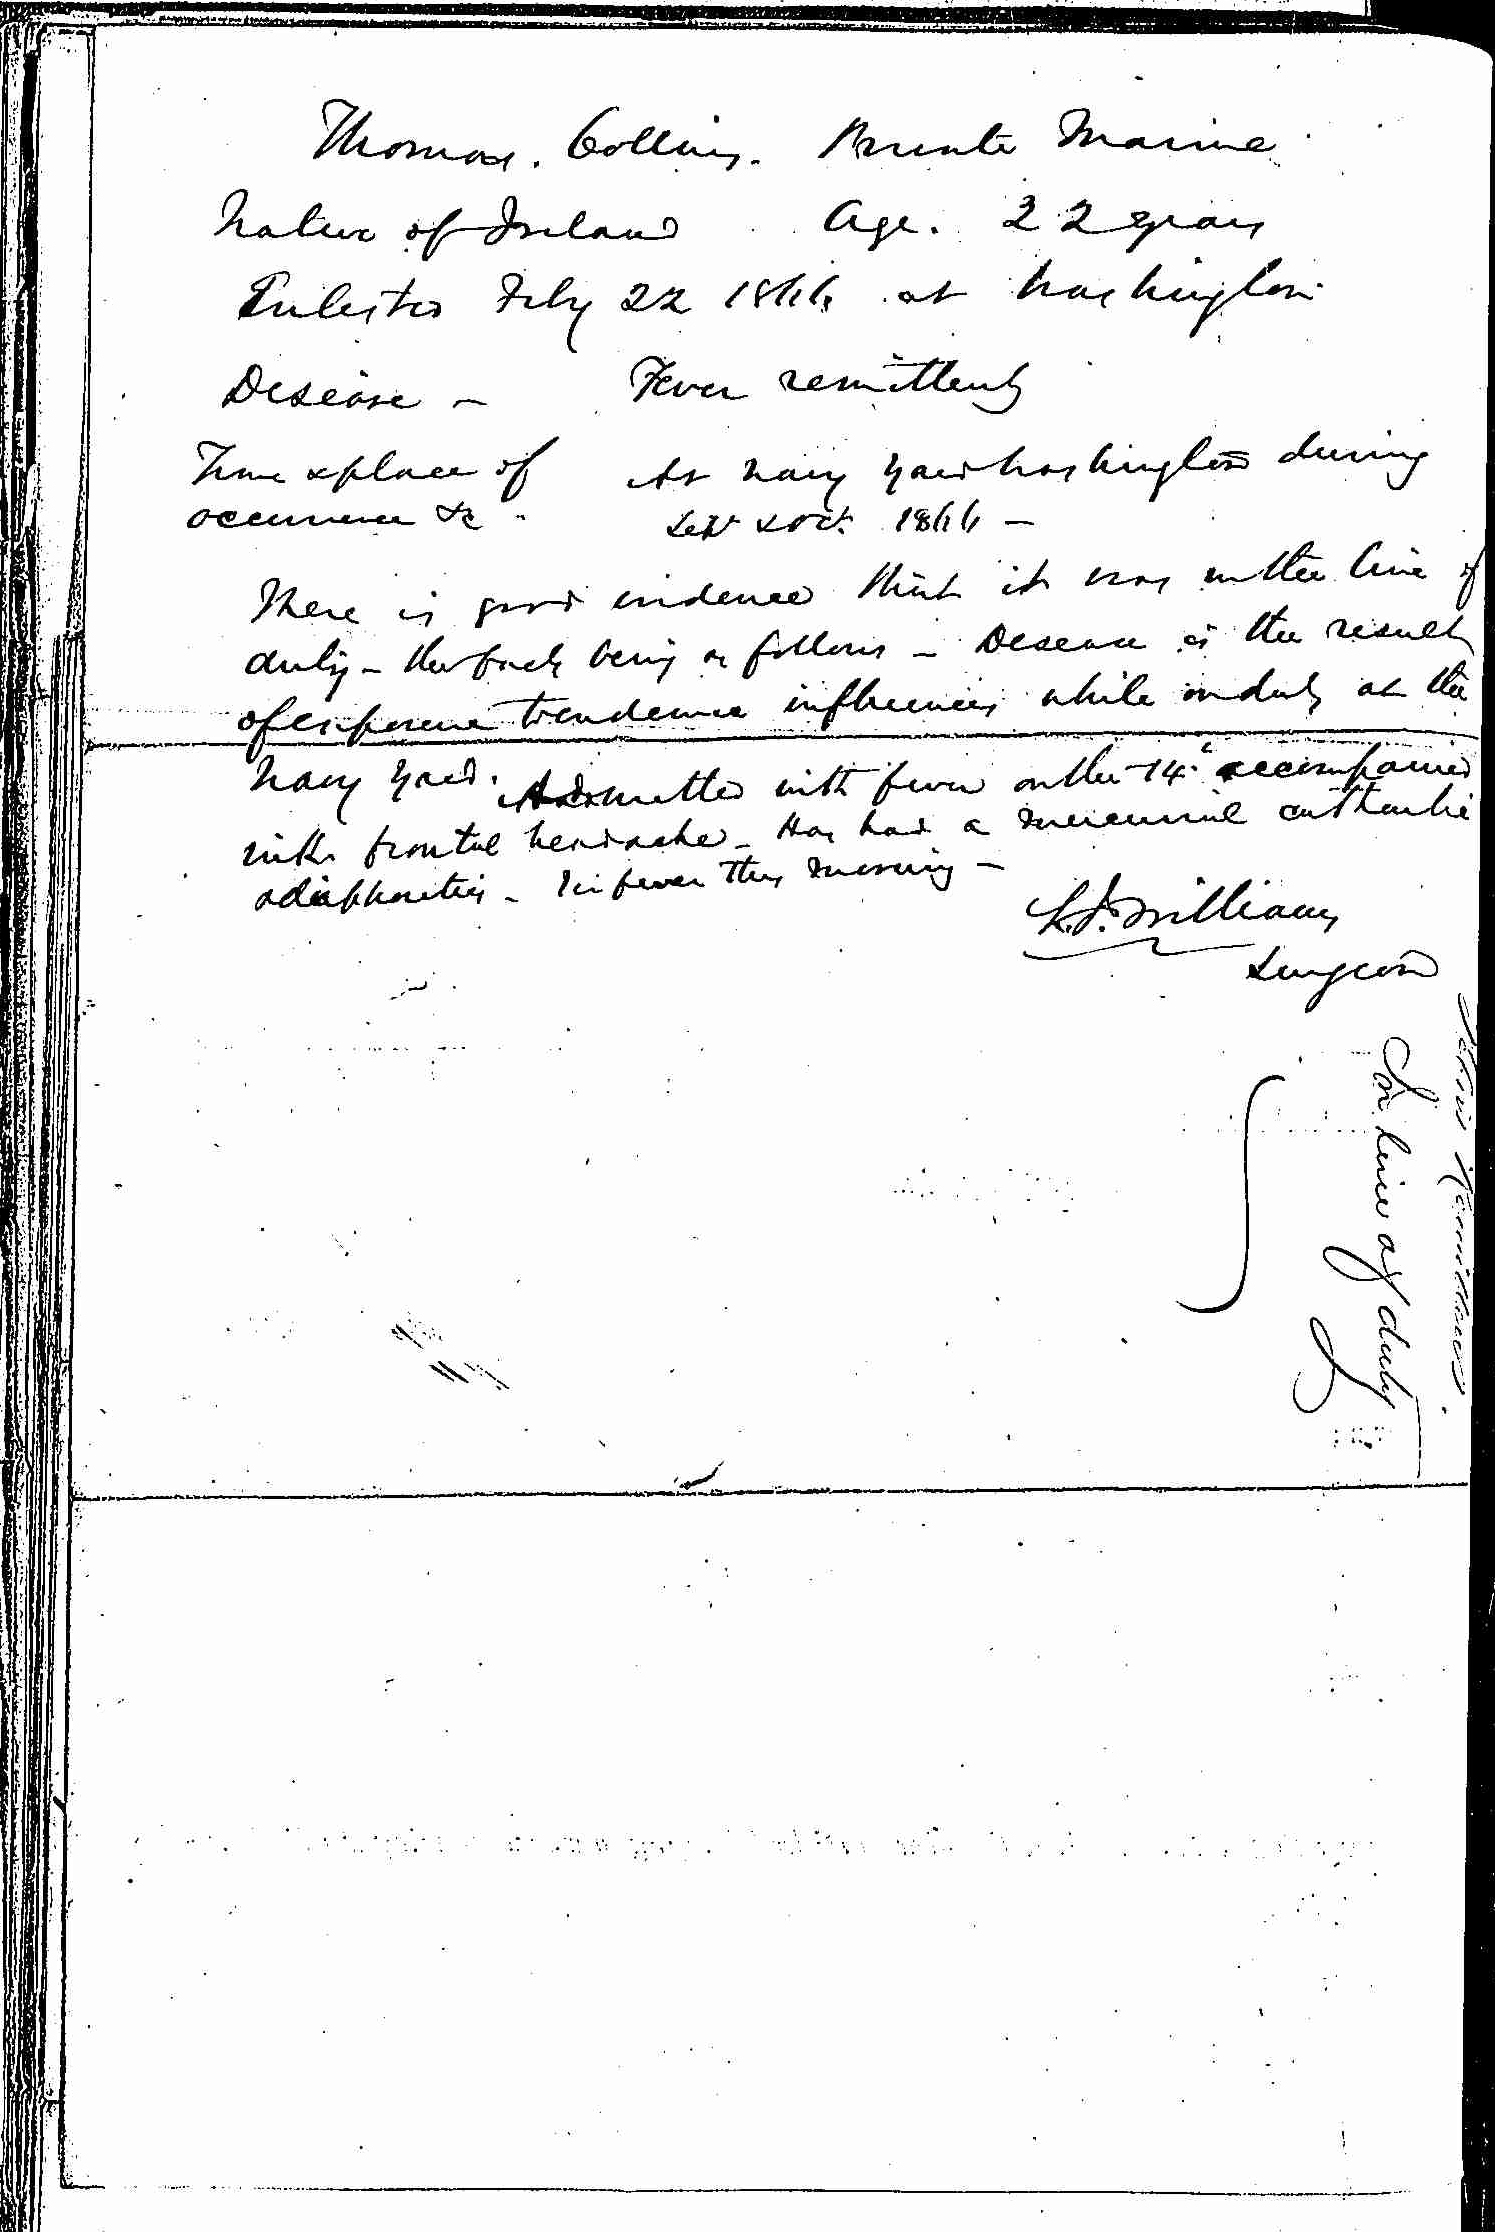 Thomas. Collins. Private Marine
Native of Ireland Age. 22 years
Enlisted Feby 22 1866 at Washington
Disease – Fever remittent
Time & place of At Navy Yard Washington during
occurrence &c. Sept & Oct. 1866 –
There is good evidence that it was in the line of
duty – the facts being as follows – Disease is the result
of exposure to endemic influences while on duty at the
Navy Yard. Admitted with fever on the 14th accompanied
with frontal headache – Has had a mercurial cathartic
& diaphoretics – fever this morning –
Williams
Surgeon
In line of duty
Febris Remittens.